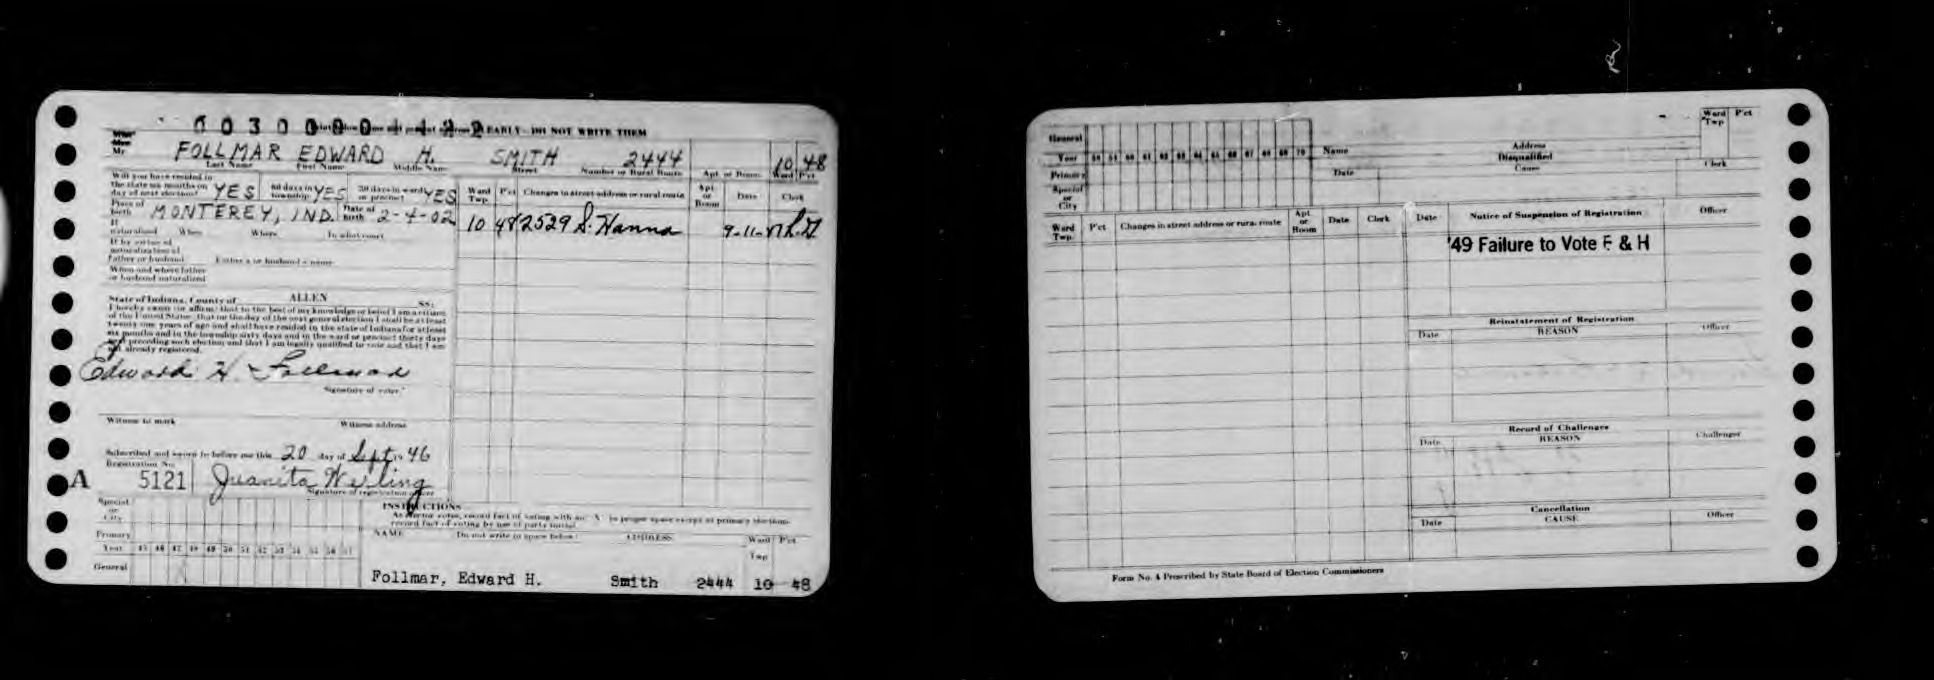 EARLY - DO NOT WRITE THEM
Mr
FOLLMAR EDWARD H. SMITH 2444 10 48
Last Name First Name Middle Name Street Number or Rural Route Apt. or Room Ward Twp. P'ct
Will you have resided in the state six months on day of next election? YES 60 days in township YES 30 days in ward or precinct YES
Ward Twp. P'ct Changes in street address or rural route Apt. or Room Date Clerk
Place of birth MONTEREY, IND. Date of birth 2-4-02
10 48 2529 S. Hanna
If naturalized When Where In what court
If by virtue of naturalization of father or husband Father's or husband's name
When and where father or husband naturalized
State of Indiana, County of ALLEN SS:
I hereby swear (or affirm) that to the best of my knowledge or belief I am a citizen
of the United States, that on the day of the next general election I shall be at least
twenty-one years of age and shall have resided in the state of Indiana for at least
six months and in the township sixty days and in the ward or precinct thirty days
next preceding such election and that I am legally qualified to vote and that I am
not already registered.
Edward H. Follmar
Signature of voter
Witness to mark Witness address
Subscribed and sworn to before me this 20 day of Sept 19 46
Registration No.
A 5121 Juanita Werling
Signature of registration officer
Special or City
Primary
Year 45 46 47 48 49 50 51 52 53 54 55 56 57
General
INSTRUCTIONS
As elector votes, record fact of voting with an "X" in proper space except at primary elections
record fact of voting by use of party initial.
NAME Do not write in space below! ADDRESS Ward Twp. P'ct
Follmar, Edward H. Smith 2444 10 48
General
Year 60 61 62 63 64 65 66 67 68 69 70
Primary
Special or City
Name Address Ward Twp P'ct
Disqualified
Date Cause Clerk
Ward Twp. P'ct Changes in street address or rural route Apt. or Room Date Clerk
Date Notice of Suspension of Registration Officer
'49 Failure to Vote F & H
Reinstatement of Registration
Date REASON Officer
Record of Challenges
Date REASON Challenger
Cancellation
Date CAUSE Officer
Form No. 4 Prescribed by State Board of Election Commissioners